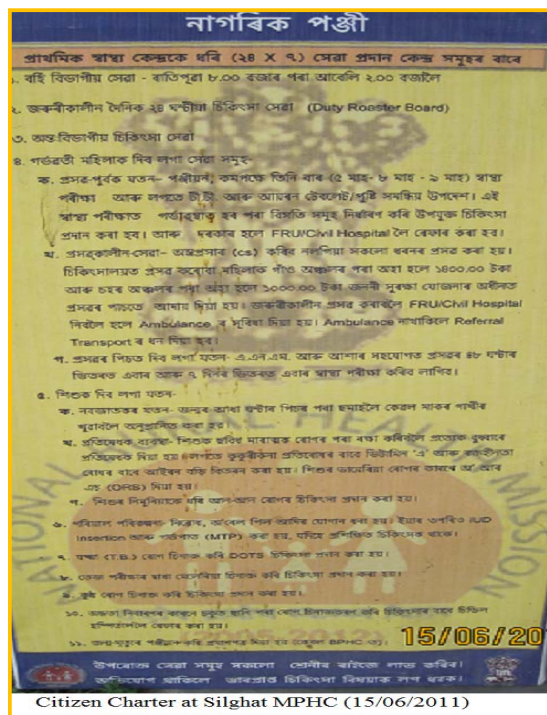 নাগৰিক পঞ্জী
প্ৰাথমিক স্বাস্থ্য কেন্দ্ৰকে ধৰি (২৪ X ৭) সেৱা প্ৰদান কেন্দ্ৰ সমূহৰ বাবে
১. বহিঃ বিভাগীয় সেৱা - ৰাতিপুৱা ৮.০০ বজাৰ পৰা আবেলি ২.০০ বজালৈ
২. জৰুৰীকালীন দৈনিক ২৪ ঘণ্টীয়া চিকিৎসা সেৱা (Duty Roaster Board)
৩. অন্তঃবিভাগীয় চিকিৎসা সেৱা
৪. গৰ্ভৱতী মহিলাক দিব লগা সেৱা সমূহ-
ক. প্ৰসৱ-পূৰ্বক যতন- পঞ্জীয়ন, কমপক্ষে তিনি বাৰ (৫ মাহ- ৮ মাহ - ৯ মাহ) স্বাস্থ্য
পৰীক্ষা আৰু লগতে টি.টি. আৰু আয়ৰন টেবলেট/পুষ্টি সম্বন্ধিয় উপদেশ। এই
স্বাস্থ্য পৰীক্ষাত গৰ্ভাৱস্থাত হব পৰা বিসংগতি সমূহ নিৰ্ধাৰণ কৰি উপযুক্ত চিকিৎসা
প্ৰদান কৰা হব। আৰু দৰকাৰ হলে FRU/Civil Hospital লৈ ৰেফাৰ কৰা হব।
খ. প্ৰসৱকালীন সেৱা- অস্ত্ৰপ্ৰসাৰ (cs) কৰিব নলগিয়া সকলো ধৰনৰ প্ৰসৱ কৰা হয়।
চিকিৎসালয়ত প্ৰসৱ কৰোৱা মহিলাক গাঁও অঞ্চলৰ পৰা অহা হলে ১৪০০.০০ টকা
আৰু চহৰ অঞ্চলৰ পৰা অহা হলে ১০০০.০০ টকা জননী সুৰক্ষা যোজনাৰ অধীনত
প্ৰসৱৰ পাচতে আদায় দিয়া হয়। জৰুৰীকালীন প্ৰসৱ কৰাবলৈ FRU/Civil Hospital
নিবলৈ হলে Ambulance ৰ সুবিধা দিয়া হয়। Ambulance নাথাকিলে Referral
Transport ৰ ধন দিয়া হব।
গ. প্ৰসৱৰ পিচত দিব লগা যতন- এ.এন.এম. আৰু আশাৰ সহযোগত প্ৰসৱৰ ৪৮ ঘণ্টাৰ
ভিতৰত এবাৰ আৰু ৭ দিনৰ ভিতৰত এবাৰ স্বাস্থ্য পৰীক্ষা কৰিব লাগিব।
৫. শিশুক দিব লগা যতন-
ক. নবজাতকৰ যতন- জন্মৰ আধা ঘণ্টাৰ পিচৰ পৰা ছমাহলৈ কেৱল মাকৰ গাখীৰ
খুৱাবলৈ অনুপ্ৰাণিত কৰা হব
খ. প্ৰতিষেধক ব্যৱস্থা- শিশুক ছবিধ মাৰাত্মক ৰোগৰ পৰা ৰক্ষা কৰিবলৈ প্ৰত্যেক বুধবাৰে
প্ৰতিষেধক দিয়া হয়। লগতে কুকুৰীকণা প্ৰতিৰোধৰ বাবে ভিটামিন 'এ' আৰু ৰক্তহীনতা
ৰোধৰ বাবে আইৰন বড়ি বিতৰন কৰা হয়। শিশুৰ ডায়েৰিয়া ৰোগৰ কাৰণে অ' আৰ
এচ (ORS) দিয়া হয়।
গ. শিশুৰ নিমুনিয়াকে ধৰি আন-আন ৰোগৰ চিকিৎসা প্ৰদান কৰা হয়।
৬. পৰিয়াল পৰিকল্পনা- নিৰোধ, অ'ৰেল পিল আদিৰ যোগান ধৰা হয়। ইয়াৰ উপৰিও IUD
Insertion আৰু গৰ্ভপাত (MTP) কৰা হয়, যদিহে প্ৰশিক্ষিত চিকিৎসক থাকে।
৭. যক্ষ্মা (T.B.) ৰোগ চিনাক্ত কৰি DOTS চিকিৎসা প্ৰদান কৰা হয়।
৮. তেজ পৰীক্ষাৰ দ্বাৰা মেলেৰিয়া চিনাক্ত কৰি চিকিৎসা প্ৰদান কৰা হয়।
৯. কুষ্ঠ ৰোগ চিনাক্ত কৰি চিকিৎসা প্ৰদান কৰা হয়।
১০. অন্ধতা নিবাৰণৰ কাৰণে চকুত ছানি পৰা ৰোগ চিনাক্তকৰণ কৰি চিকিৎসাৰ বাবে চিভিল
হস্পিতাললৈ ৰেফাৰ কৰা হয়।
১১. জন্ম-মৃত্যুৰ পঞ্জীয়ক কৰি প্ৰমাণপত্ৰ দিয়া হয় (কেৱল BPHC ত)।
NATIONAL RURAL HEALTH MISSION
15/06/20
উপৰোক্ত সেৱা সমূহ সকলো শ্ৰেনীৰ ৰাইজে লাভ কৰিব।
অভিযোগ থাকিলে ভাৰপ্ৰাপ্ত চিকিৎসা বিষয়াক লগ ধৰক।
Citizen Charter at Silghat MPHC (15/06/2011)